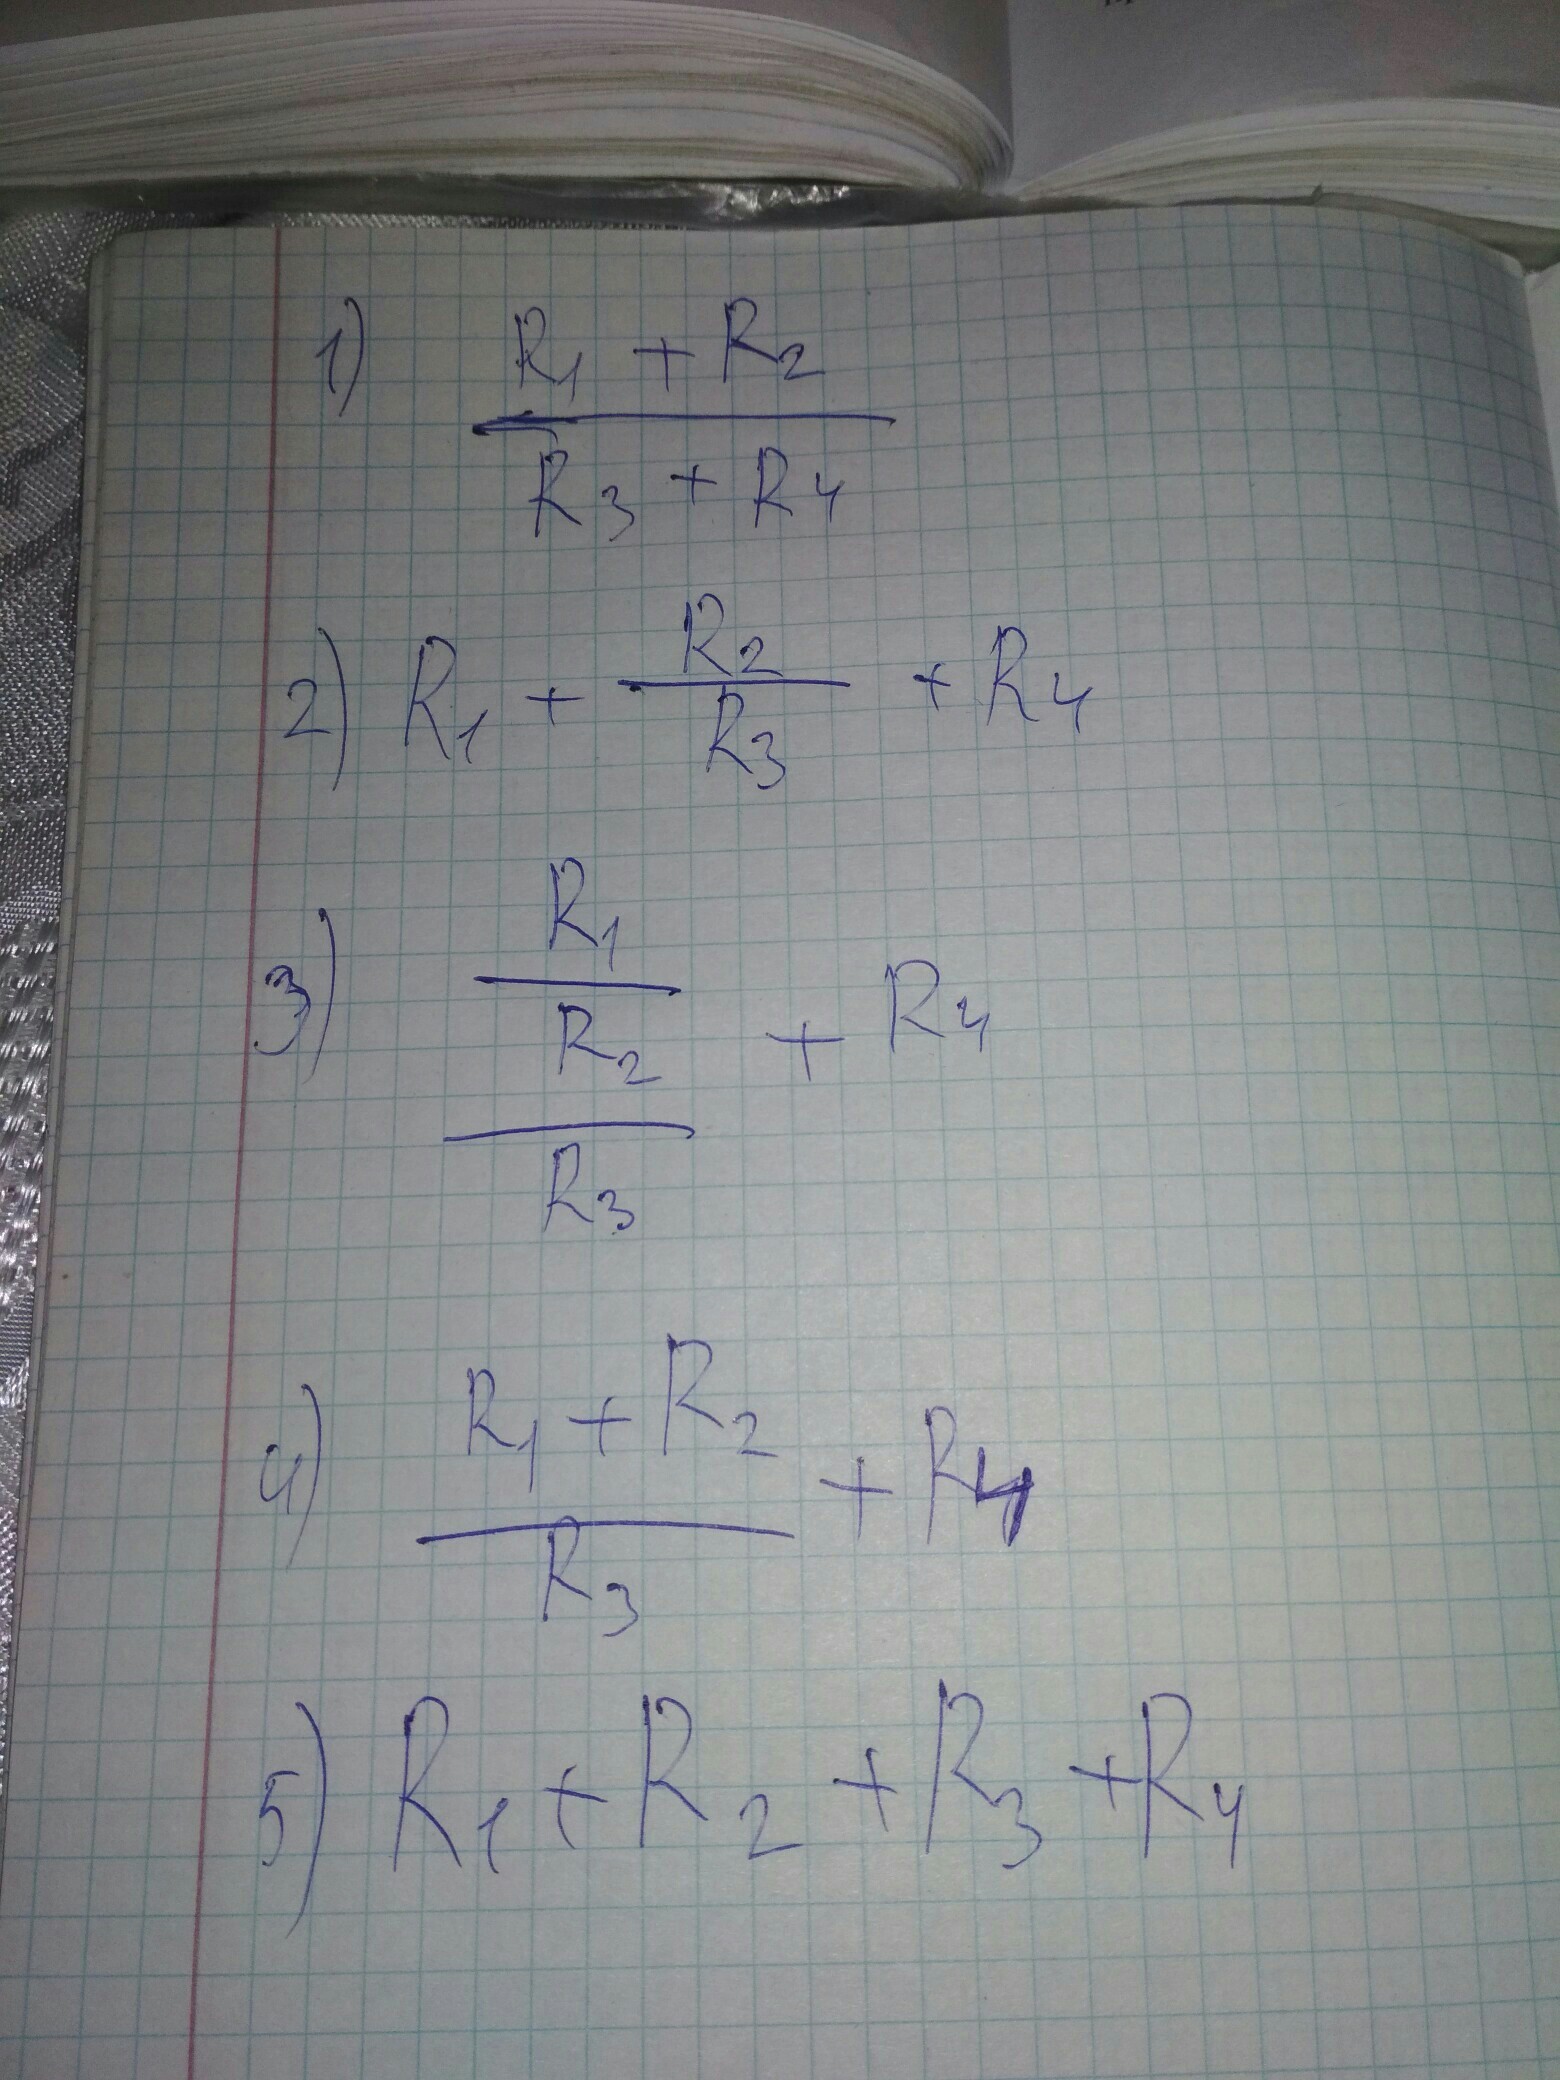 1) R1 + R2
R3 + R4
2) R1 + R2 + R4
R3
3) R1
R2 + R4
R3
4) R1 + R2 + R4
R3
5) R1 + R2 + R3 + R4